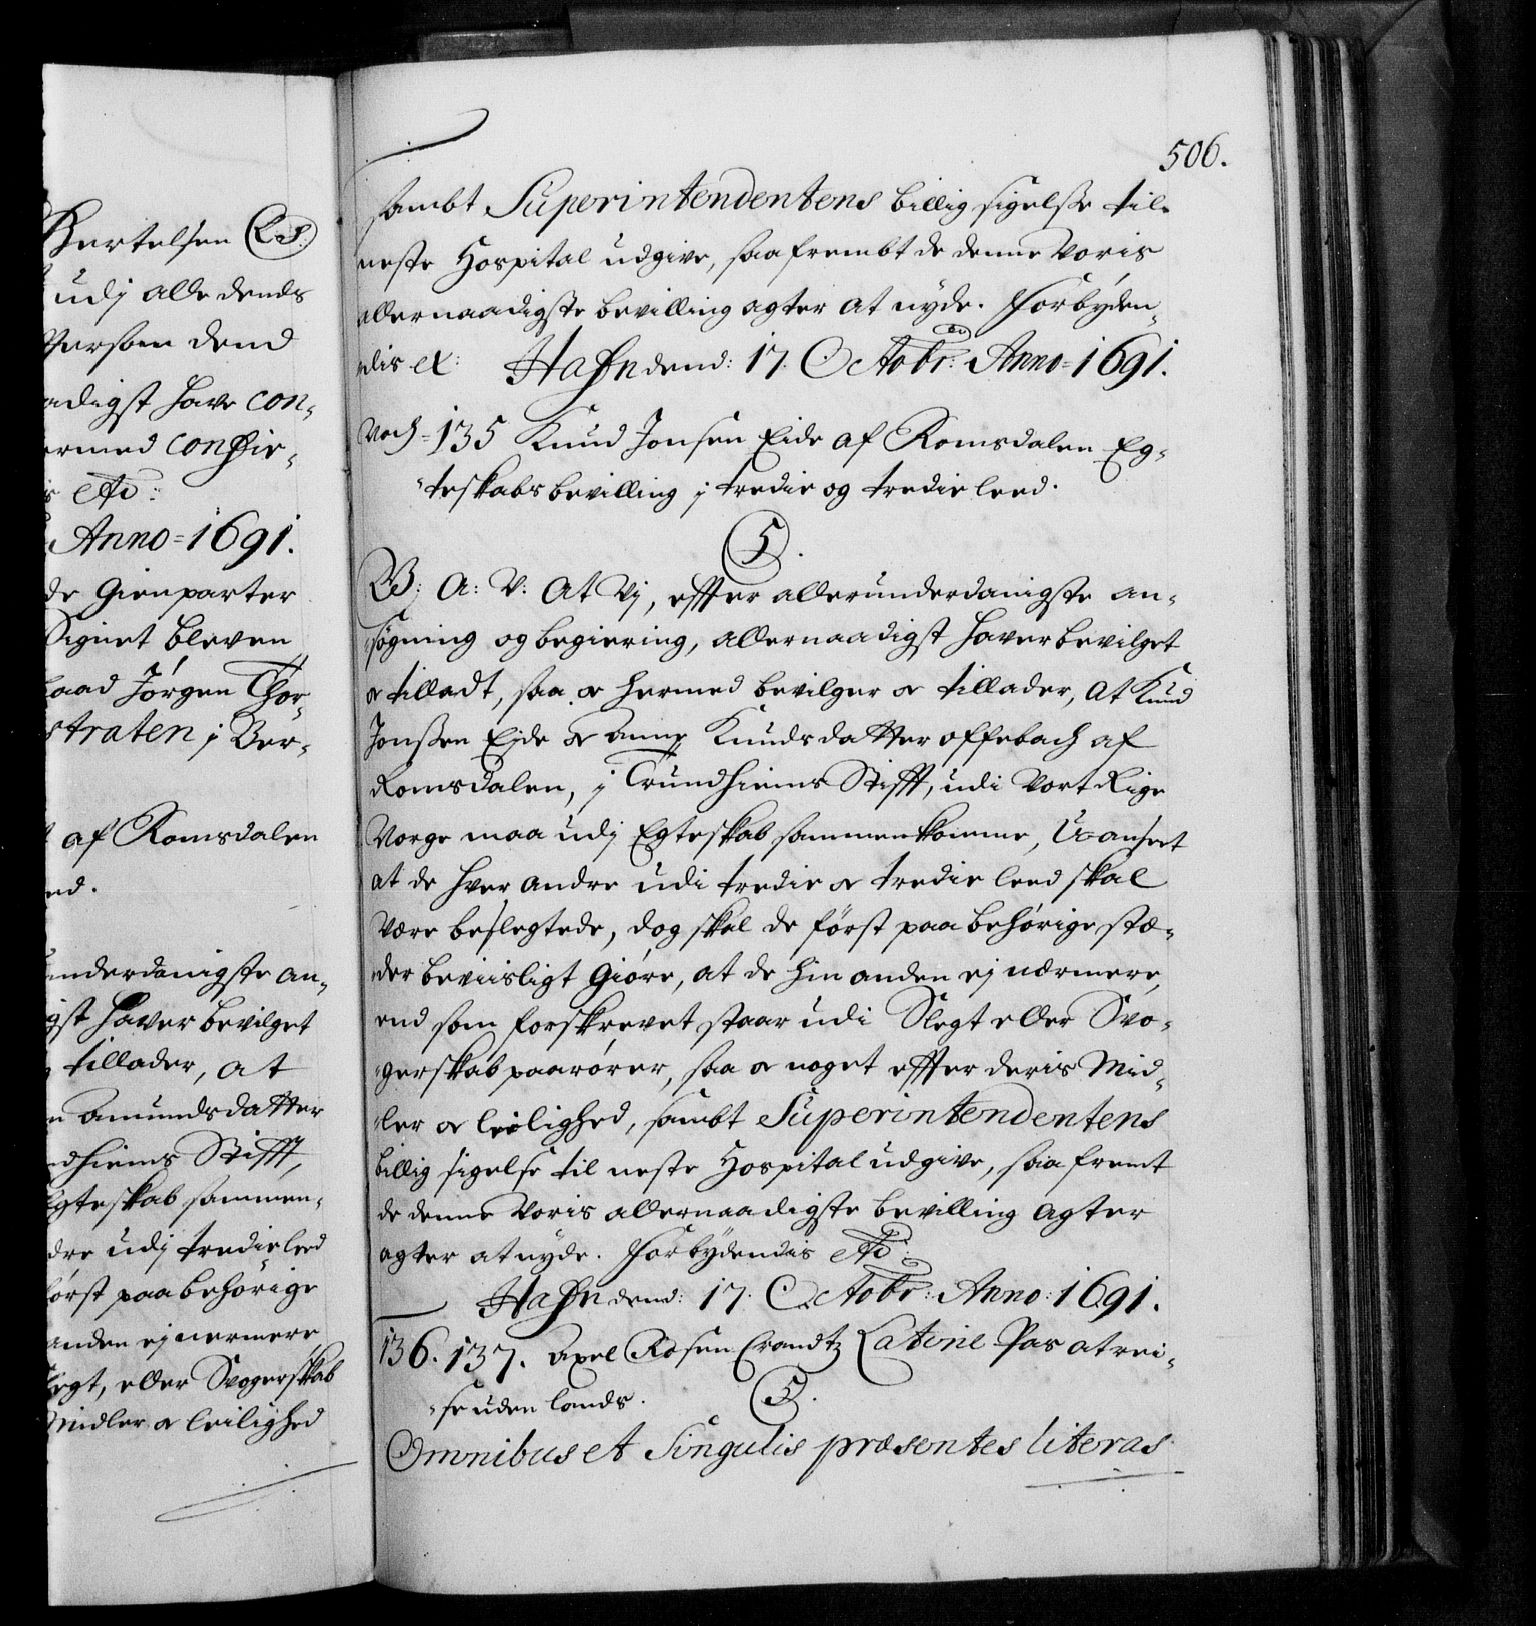 Bertelsen
udj alle dends
Person dend
adigst have con-
ermed confir-
is etc:
Anno=1691.
de Gienparter
Signet bleven
Jørgen Thor-
straten j Ber-
af Romsdalen
underdanigste an-
gst haver bevilget
tillader, at
Amundsdatter
dhiems Stifft,
Egteskab sammen-
dre udj tredie leed
først paa behørige
anden ej nermere
legt, eller Svogerskab
Midler oc leilighed
506.
sambt Superintendentens billig sigelsse til
neste Hospital udgive, saafrembt de denne Voris
allernaadigste bevilling agter at nyde. Forbyden-
dis et: Hafn dend: 17. Octobr: Anno=1691.
No=135 Knud Jonsen Eide af Romsdalen Eg-
teskabs bevilling j tredie og tredie leed.
5.
G: A: V: At Vj, effter allerunderdanigste an-
søgning og begiering, allernaadigst haver bevilget
oc tilladt, saa oc hermed bevilger oc tillader, at Knud
Jonssen Eide oc Anne Knudsdatter offebach af
Romsdalen, j Trundhiems Stifft, udi Vort Rige
Norge maa udj Egteskab sammenkomme, Uanseet
at de hver andre udi tredie oc tredie leed skal
være beslegtede, dog skal de først paa behørige stæ-
der beviisligt giøre, at de hin anden ej nærmere,
end som forskrevet staar udi Slegt eller Svo-
gerskab paarører, saa oc noget effter deris Mid-
ler oc leilighed, sambt Superintendentens
billig sigelse til neste Hospital udgive, saa fremt
de denne Voris allernaadigste bevilling agter
agter at nyde. Forbydendis etc
Hafn dend: 17. Octobr: Anno: 1691.
136. 137. Axel Rosen Crandtz Latine Pas at rei-
se uden lands. 5.
Omnibus et Singulis præsentes literas